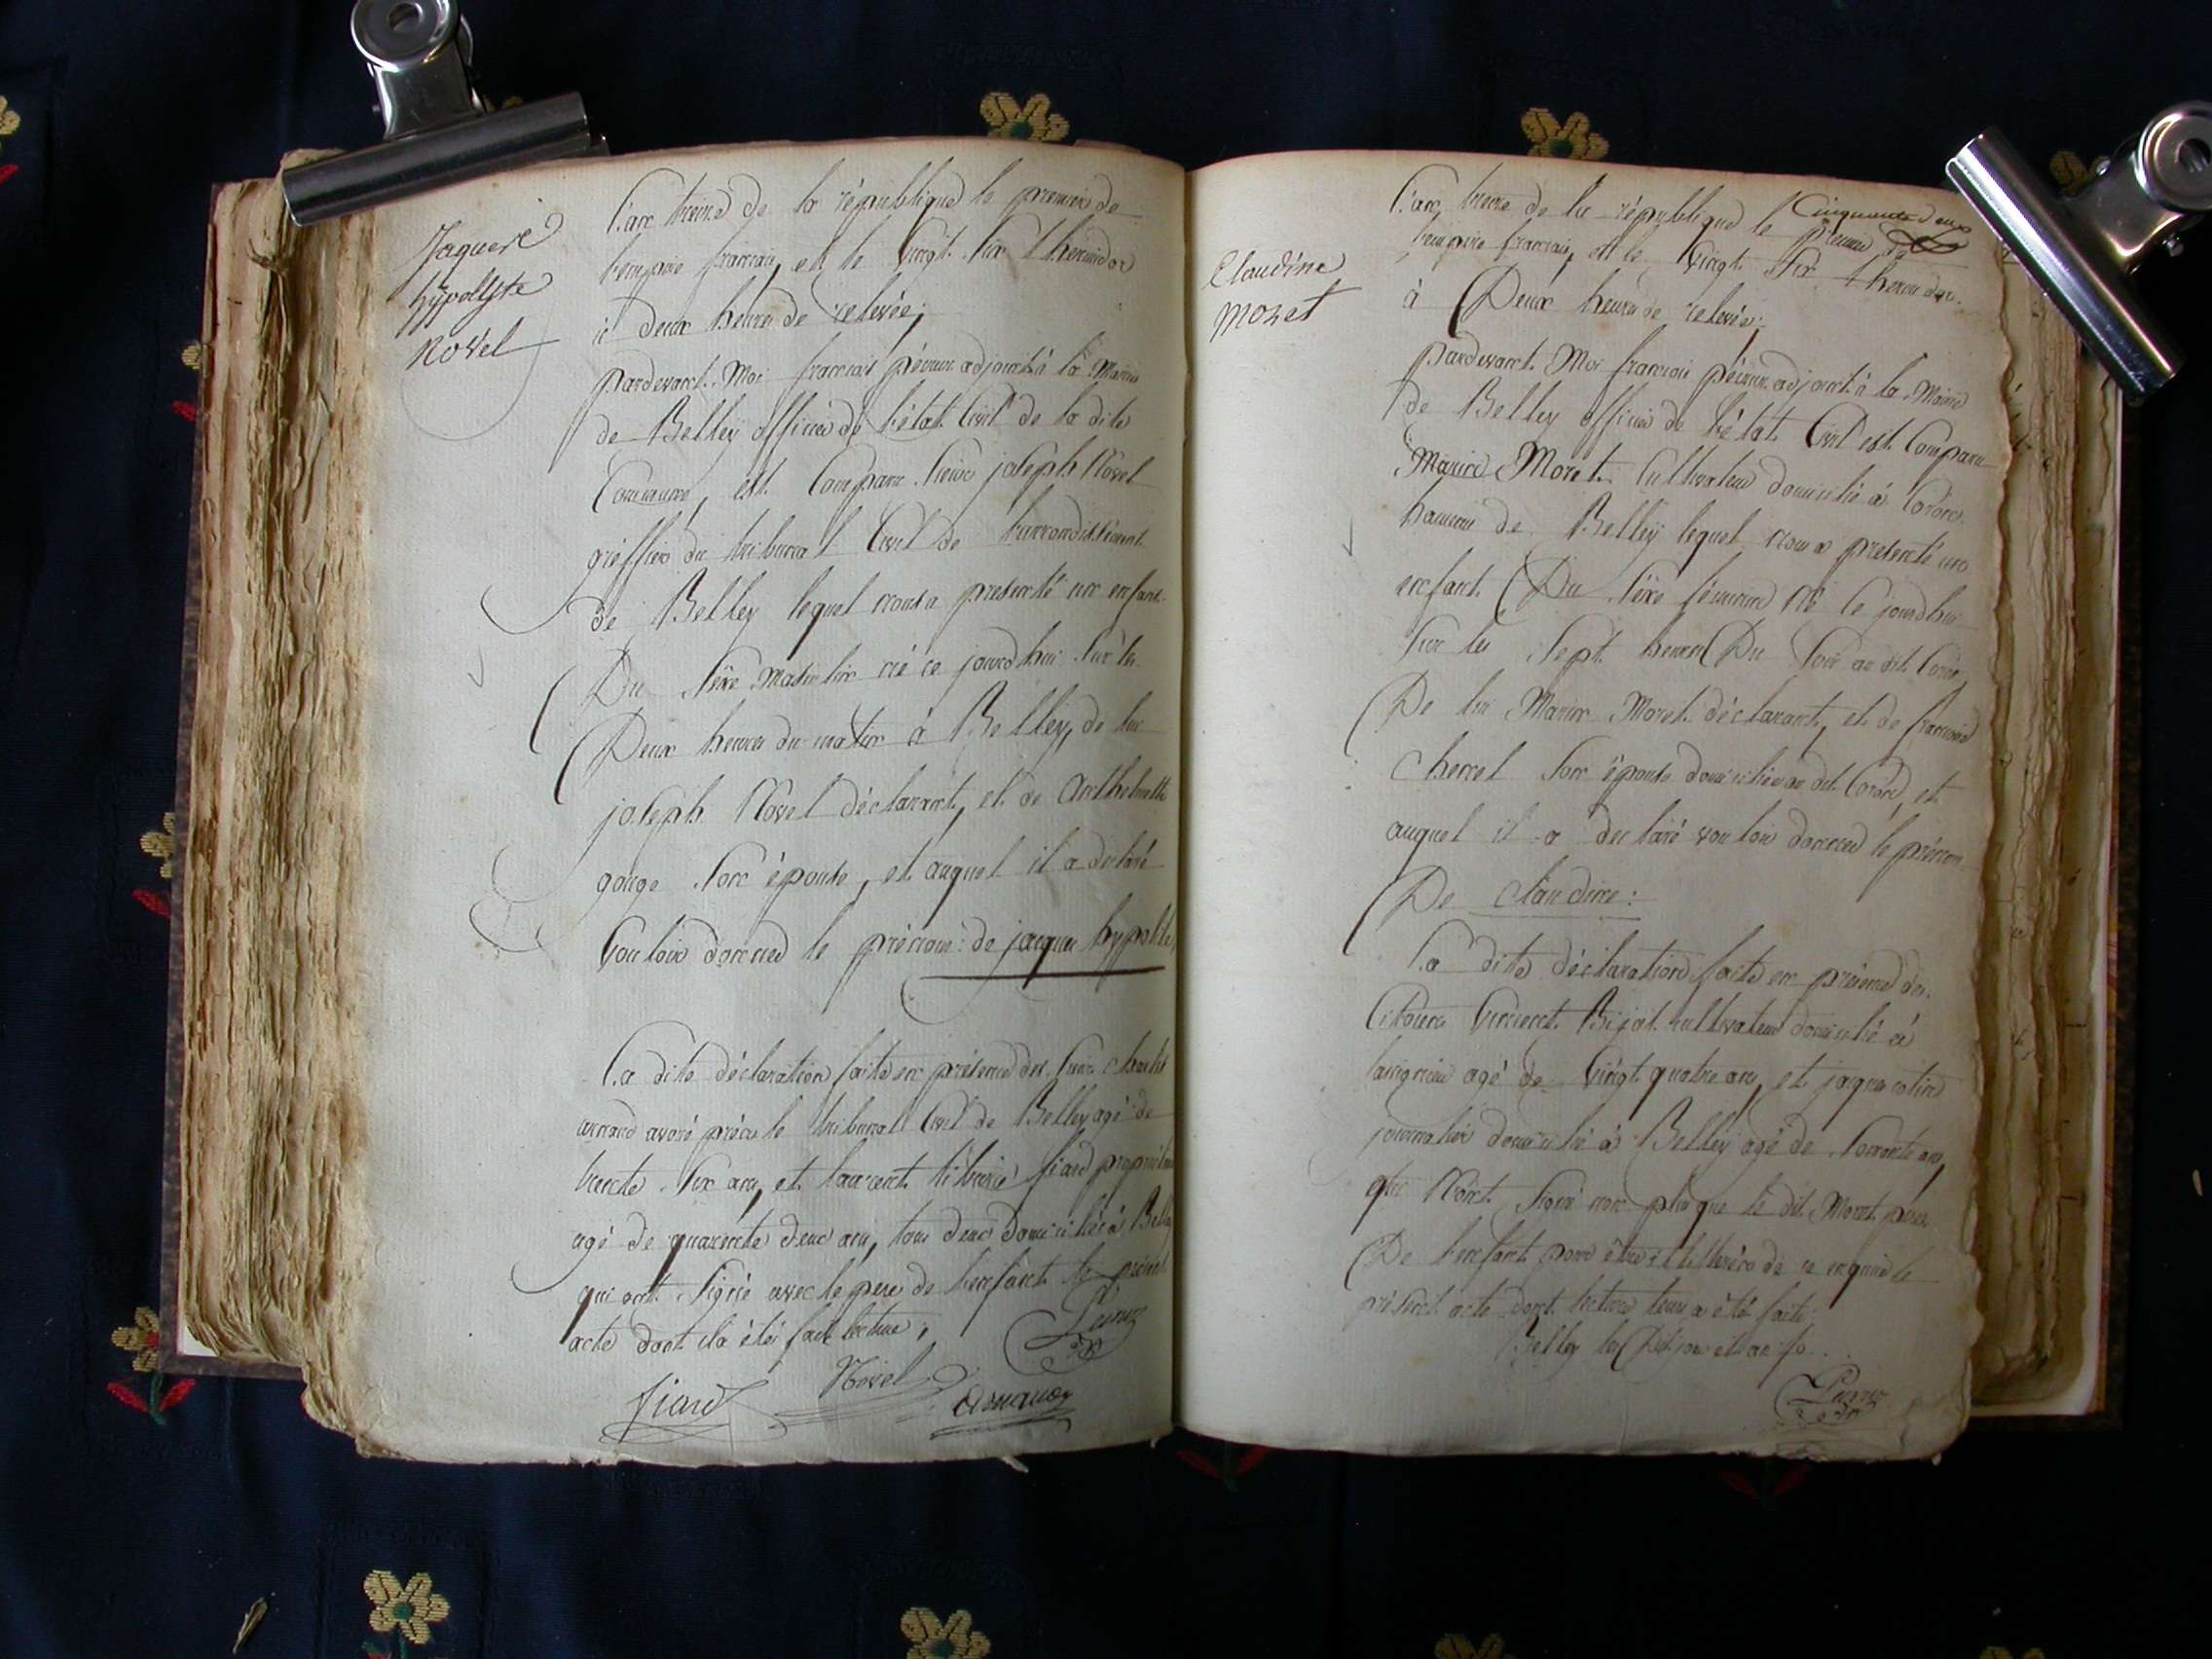 Jaquere
hypollyte
Novel
L'an treize de la république le premier de
l'empire francais, et le vingt six thermidor
à deux heures de relevée,
pardevant Moi francois péruz adjoint à la Mairie
de Belley officier de l'état Civil de la dite
Commune, est Comparu sieur joseph Novel
greffier du tribunal Civil de l'arrondissement
de Belley lequel nous a presenté un enfant
Du sexe Masculin né ce jourd'hui sur les
Deux heures du matin à Belley, de lui
joseph Novel déclarant, et de Anthelmette
gouge son épouse, et auquel il a déclaré
Vouloir donner le prénom: de jacques hypolite
La dite déclaration faite en présence des sieurs charles
arnaud avoué près le tribunal Civil de Belley agé de
trente six ans, et laurent tiburce fiard propriétaire
agé de quarante deux ans, tous deux domiciliés à Belley
qui ont signé avec le pere de l'enfant le présent
acte dont il a été fait lecture,
Novel
fiard
Cinquante deux
Claudine
Moret
L'an treize de la république le premier de
l'empire francais, et le vingt six thermidor
à Deux heures de relevée;
pardevant Moi francois péruz adjoint à la Mairie
de Belley officier de l'état Civil est Comparu
Moret Cultivateur domicilié à
hameau de Belley lequel nous a presenté un
enfant Du sexe féminin Né Ce jourd'hui
sur les sept heures Du soir au dit
De lui Moret déclarant, et de francoise
chenel son épouse domiciliée au dit et
auquel il a declaré vouloir donner le prénom
De claudine:
La dite déclaration faite en présence des
Citoyens vincent Bijot cultivateur domicilié à
agé de vingt quatre ans, et jaques
journalier domicilié à Belley agé de ans,
qui N'ont signé non plus que le dit Moret père
De l'enfant pour être illitérés de ce enquis le
présent acte dont lecture leur a été faite
Belley les Dit jour et an